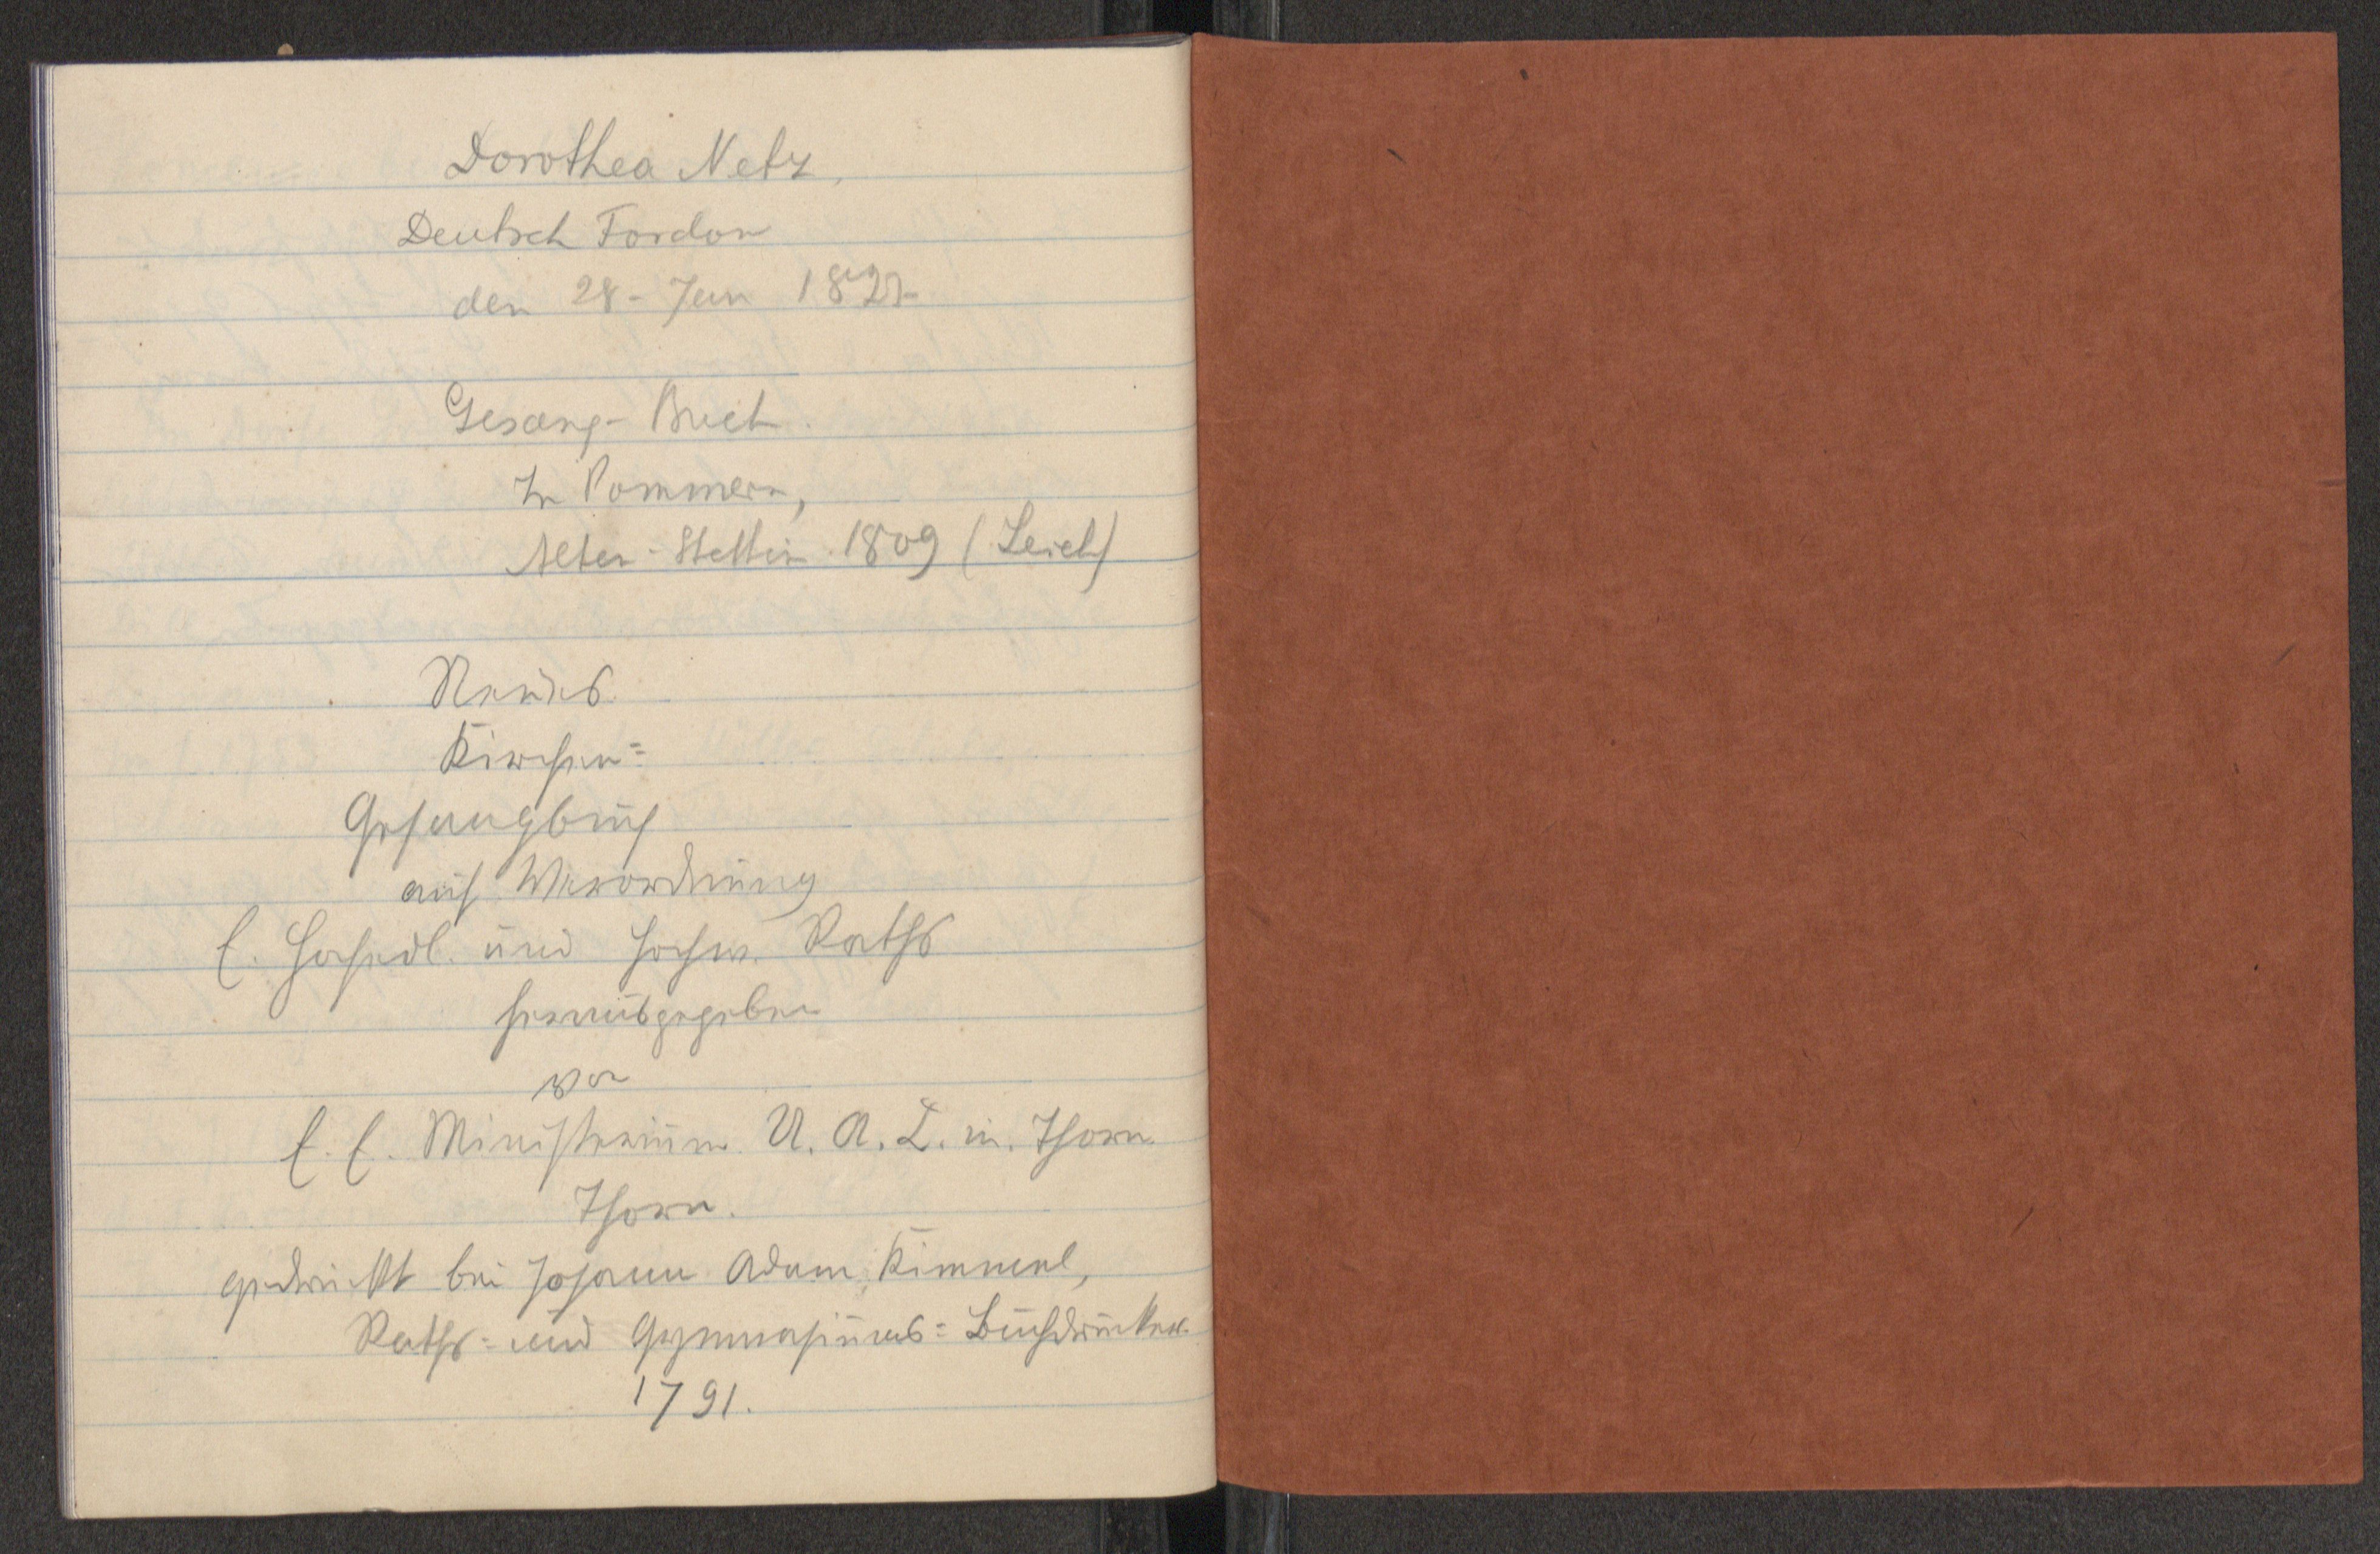 Dorothea Netz,
Deutsch Fordon
den 28 - Jan
Gesang-Buch.
In Pommern,
Alten-Stettin. 1809 (Leich)
Neues
Kirchen=
Gesangbuch
auf Verordnung
E. Hochedl. und hochw. Raths
herausgegeben
von
E. E. Ministerium U. A. C. in. Thorn
Thorn.
gedruckt bei Johann Adam Kimmel,
Raths= und Gymnasiums= Buchdrucker.
1791.